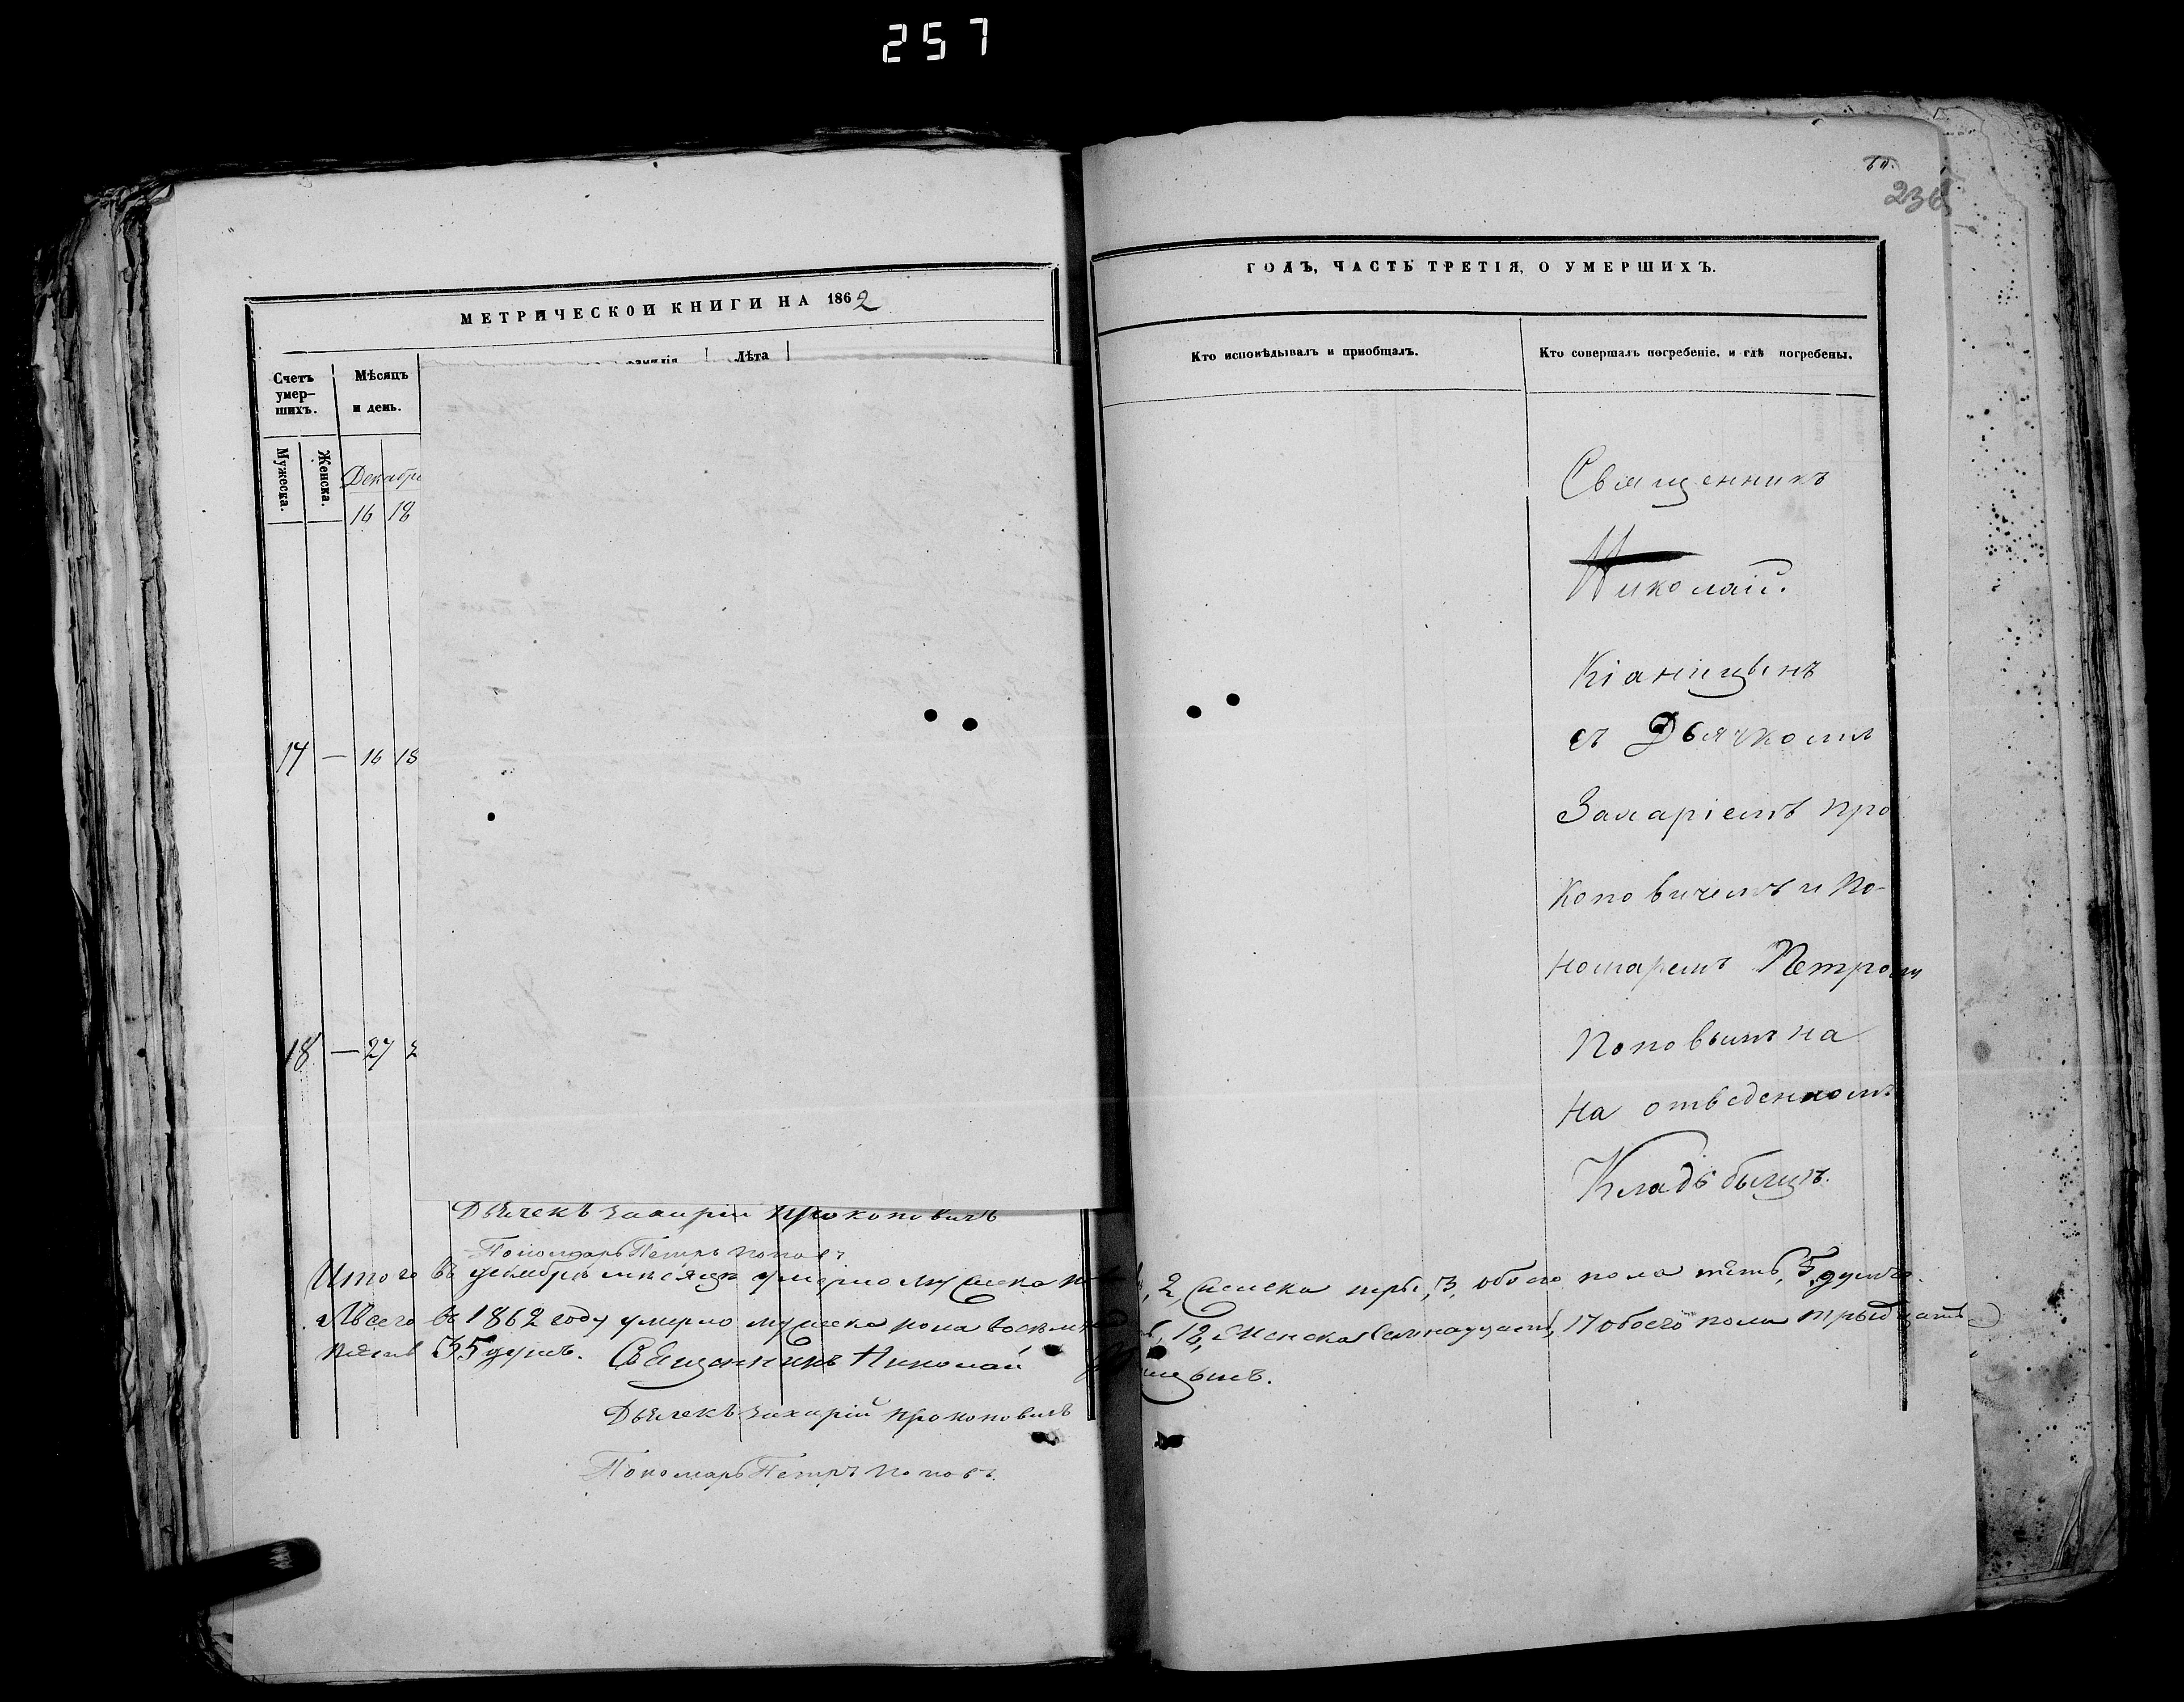 257
236
МЕТРИЧЕСКОЙ КНИГИ НА 1862
Счетъ умер-
шихъ.
Мѣсяцъ
и день.
Лѣта
Мужеска.
Женска.
Декабр
16 18
17 — 16 18
18 — 27
Дьячекъ Захарій Прокоповичъ
Пономарь Петръ Поповъ
Итого въ Декабрѣ мѣсяцѣ умерло мужеска
Всего въ 1862 году умерло мужеска пола восемн
пять 35 душъ. Священникъ Николай
Дьячекъ Захарій Прокоповичъ
Пономарь Петръ Поповъ.
ГОДЪ, ЧАСТЬ ТРЕТІЯ, О УМЕРШИХЪ.
Кто исповѣдывалъ и пріобщалъ.
Кто совершалъ погребеніе, и гдѣ погребены.
Священникъ
Николай.
съ Дьячкомъ
Захаріемъ Про
коповичемъ и По-
номаремъ Петромъ
Поповымъ на
на отведенномъ
Кладбыщѣ.
2, женска тры, 3, обоего пола пять, 5, душъ.
18, Женска семнадцать, 17 обоего пола трыдцать